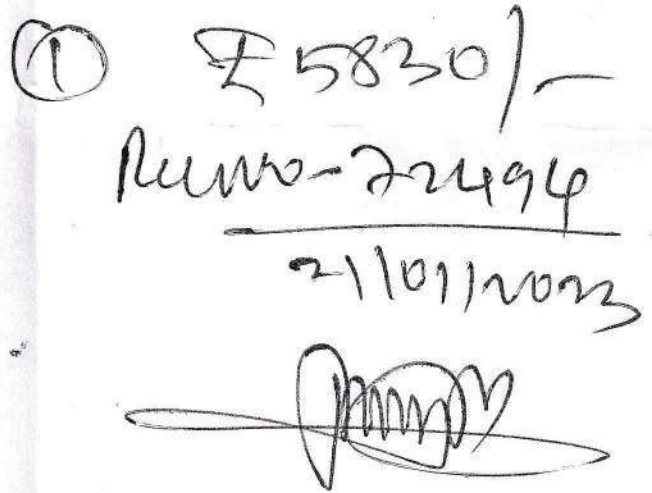 ① ₹ 5830/-
Rec No-22494
21/01/2023